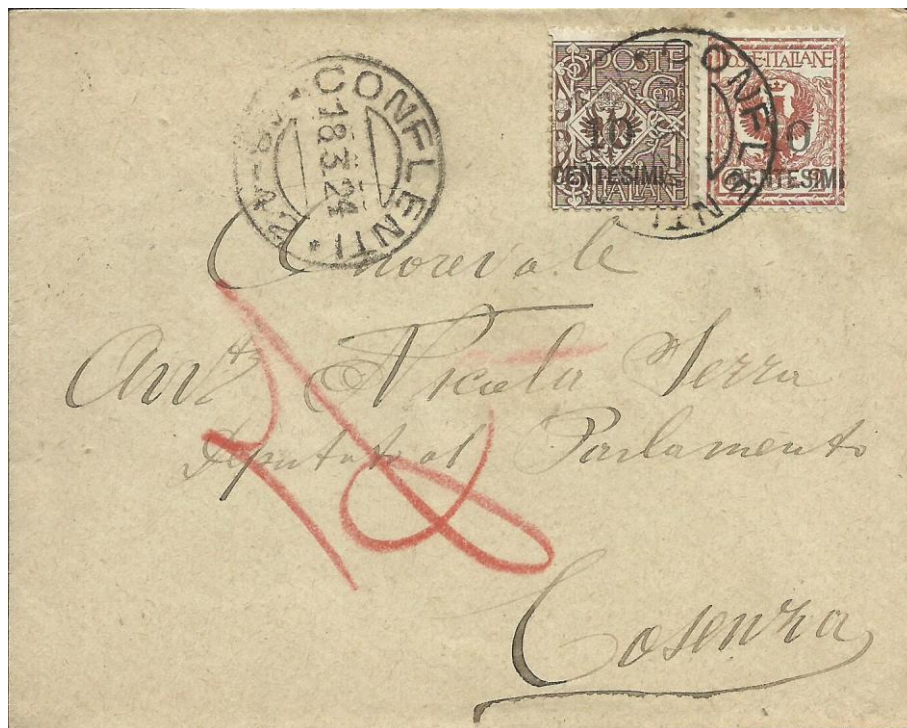 CONFLENTI
18.3.24
POSTE
Cent
10
CENTESIMI
ITALIANE
POSTE·ITALIANE
0
CENTESIMI
CONFLENTI
Onorevole
Avv.to Nicola Serra
Deputato al Parlamento
Cosenza